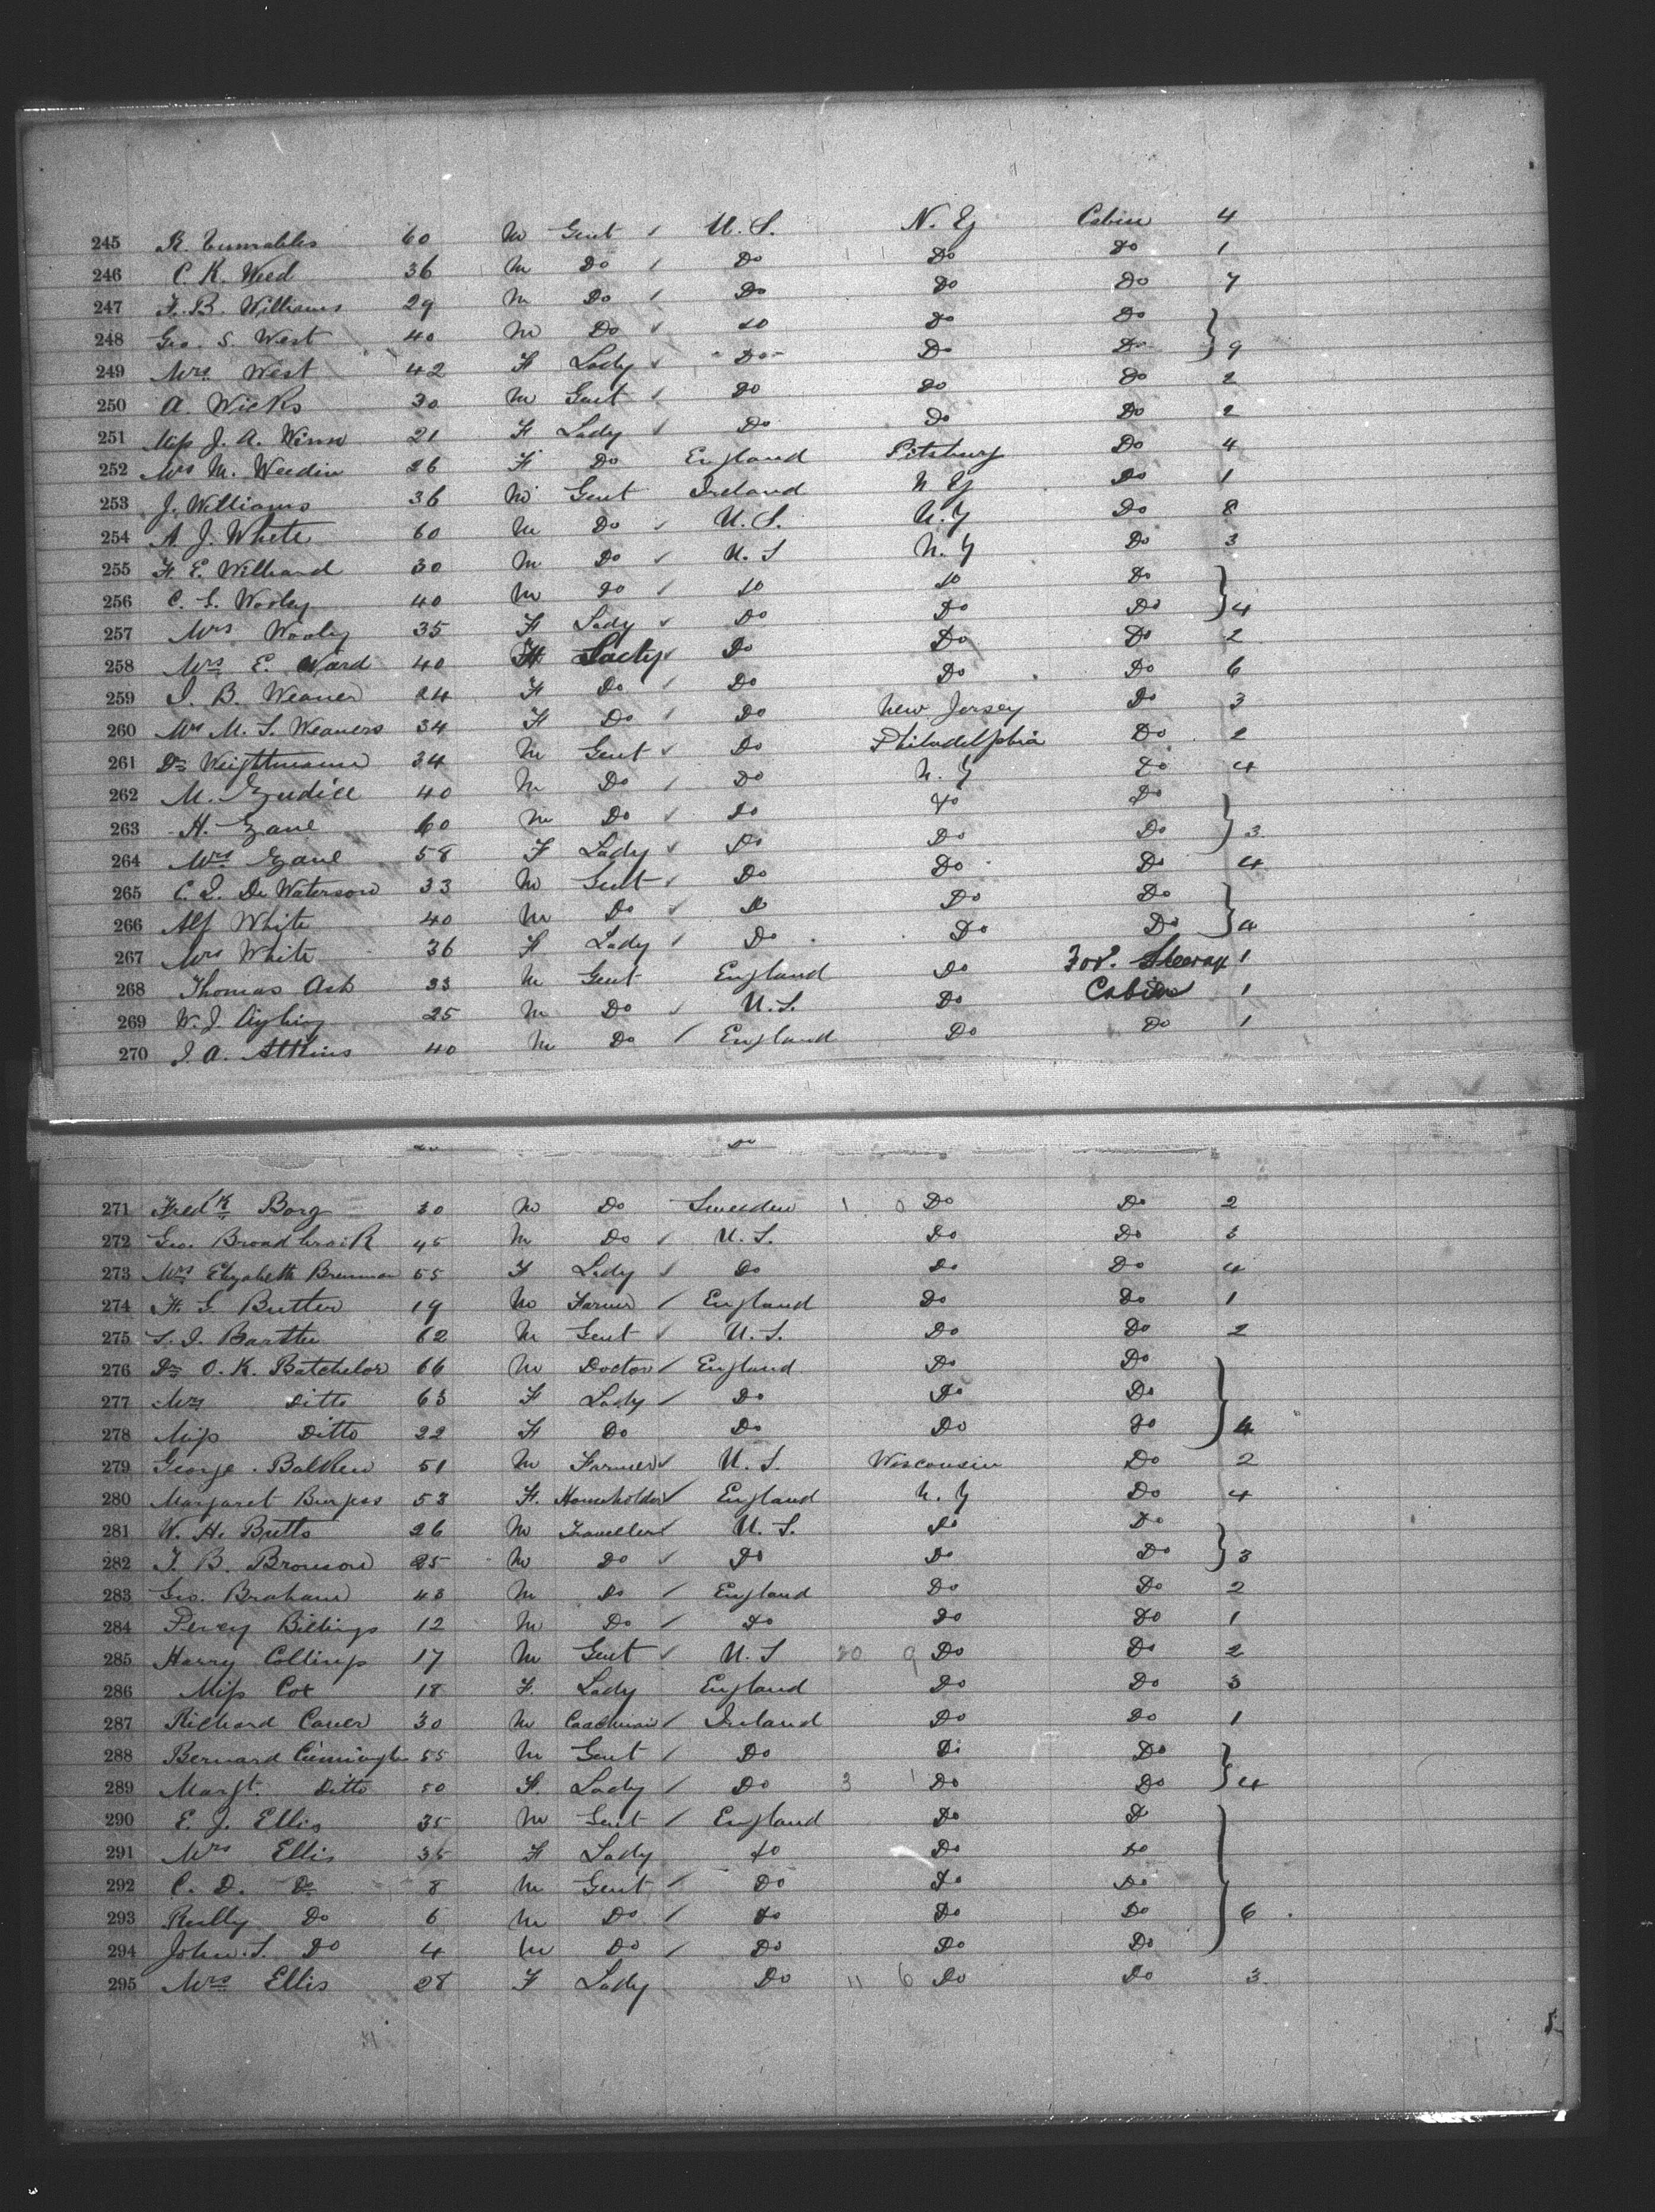 245 R. 60 M Gent / U.S. N.Y Cabin 4
246 C. K. Weed 36 M Do / Do Do Do 1
247 F. B. Williams 29 M Do / Do Do Do 7
248 Geo. S. West 40 M Do ✓ Do Do Do
249 Mrs West 42 F Lady ✓ Do Do Do } 9
250 A. Wicks 30 M Gent / Do Do Do 2
251 Miss J. A. Winn 21 F Lady / Do Do Do 2
252 Mrs M. Weedin 26 F Do England Pitsburg Do 4
253 J. Williams 36 M Gent Ireland N.Y Do 1
254 A. J. White 60 M Do ✓ U.S. N.Y Do 8
255 F. E. Williard 30 M Do ✓ U.S N.Y Do 3
256 C. S. Wooly 40 M Do / Do Do Do
257 Mrs Wooly 35 F Lady ✓ Do Do Do } 4
258 Mrs E. Ward 40 F Lady ✓ Do Do Do 2
259 J. B. Weaver 24 F Do / Do Do Do 6
260 Mrs M. S. Weavers 34 F Do / Do New Jersey Do 3
261 Dr Weightmann 34 M Gent ✓ Do Philadelphia Do 2
262 M. 40 M Do / Do N.Y Do 4
263 H. Zane 60 M Do ✓ Do Do Do
264 Mrs Zane 58 F Lady ✓ Do Do Do } 3
265 C. I. De Waterson 33 M Gent ✓ Do Do Do 4
266 Alf White 40 M Do ✓ Do Do Do
267 Mrs White 36 F Lady / Do Do Do } 4
268 Thomas Ash 23 M Gent England Do For. Steerag 1
269 W. J. Ayling 25 M Do / U.S. Do Cabin 1
270 J. A. Atkins 40 M Do / England Do Do 1
Do
271 Fredk Borg 30 M Do Sweeden 1 0 Do Do 2
272 Geo. Broadbrook 45 M Do / U.S. Do Do 3
273 Mrs Elizabeth Brennan 55 F Lady / Do Do Do 4
274 F. G. Butter 19 M Farmer / England Do Do 1
275 S. J. Barttu 62 M Gent ✓ U.S. Do Do 2
276 Dr O. K. Batchelor 66 M Doctor / England Do Do
277 Mrs Ditto 63 F Lady / Do Do Do
278 Miss Ditto 22 F Do Do Do Do } 4
279 George Balkew 51 M Farmer ✓ U.S. Wisconsin Do 2
280 Margaret Burgess 53 F. Householder ✓ England N.Y Do 4
281 W. H. Butts 26 M Traveller ✓ U.S. Do Do
282 T. B. Bronson 25 M Do ✓ Do Do Do } 3
283 Geo. Braham 43 M Do / England Do Do 2
284 Percy Billings 12 M Do / Do Do Do 1
285 Harry Collings 17 M Gent ✓ U.S 20 9 Do Do 2
286 Miss Cox 18 F. Lady England Do Do 3
287 Richard Caver 30 M Coachman / Ireland Do Do 1
288 Bernard 55 M Gent / Do Do Do
289 Margt. Ditto 50 F. Lady / Do 3 1 Do Do } 4
290 E. J. Ellis 35 M Gent / England Do Do
291 Mrs Ellis 35 F Lady Do Do Do
292 C. D. Do 8 M Gent / Do Do Do
293 Reilly Do 6 M Do / Do Do Do } 6
294 John S. Do 4 M Do / Do Do Do
295 Mrs Ellis 28 F Lady Do 11 6 Do Do 3
5